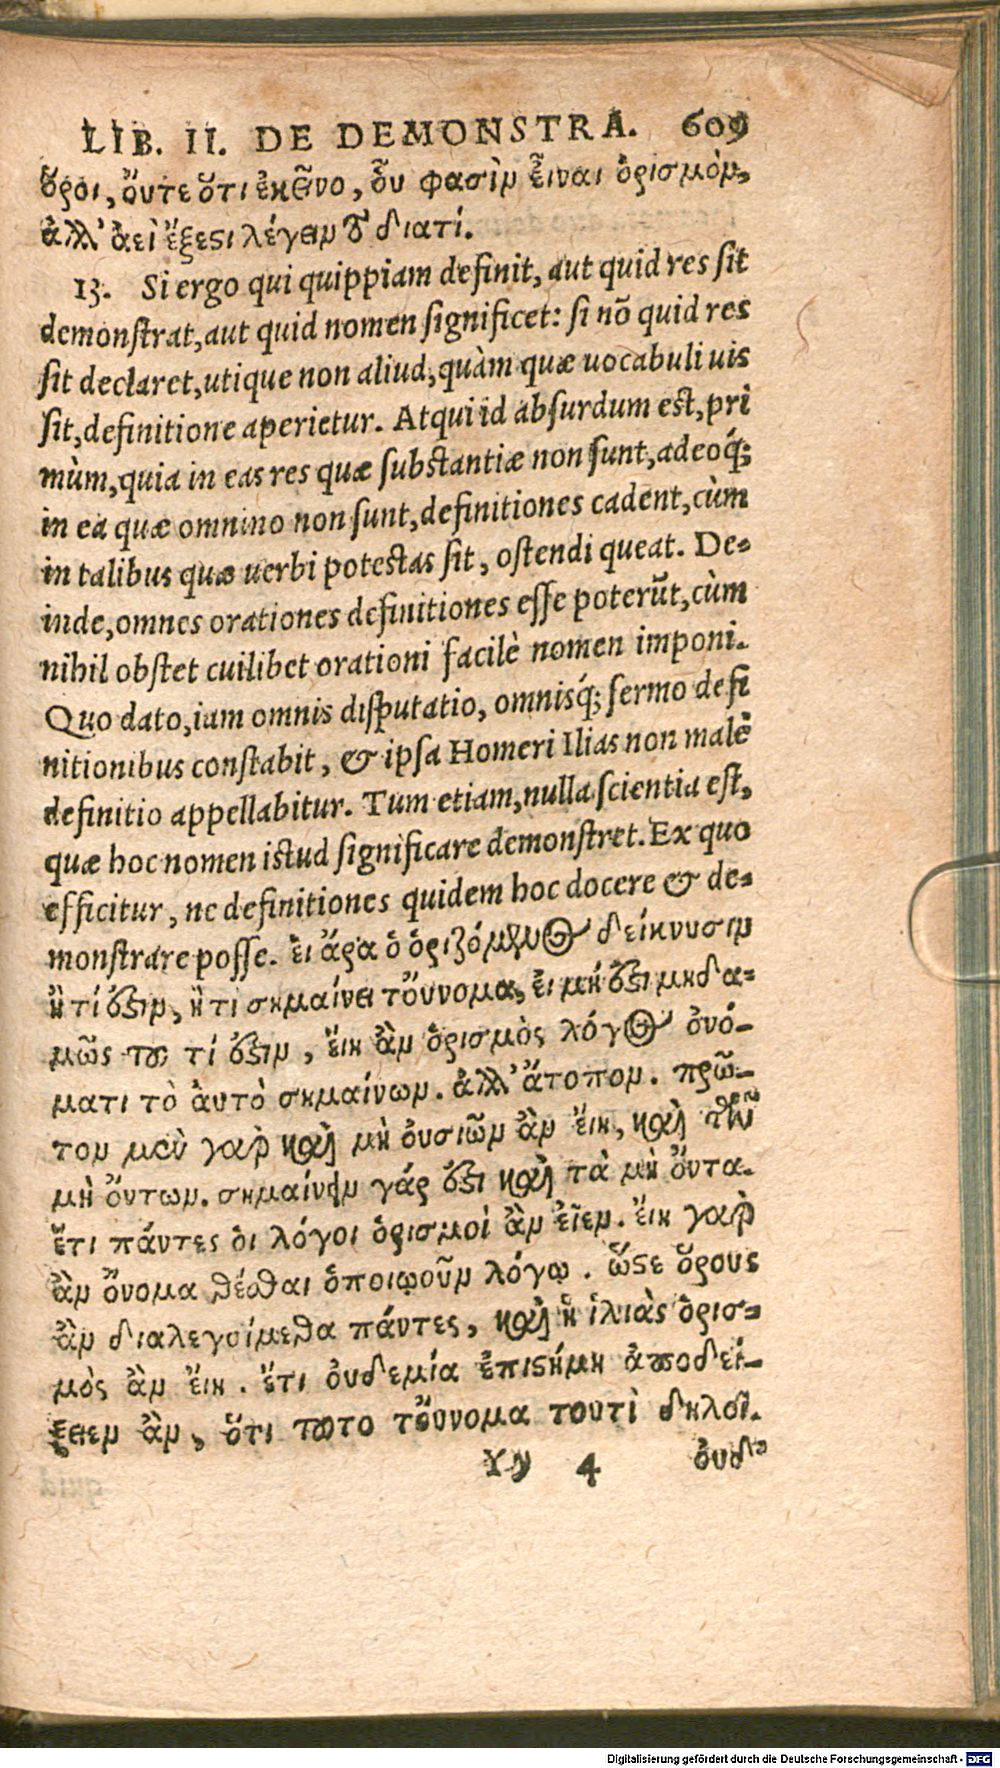 LIB. II. DE DEMONSTRA. 609
ὅροι, οὔτε ὅτι ἐκεῖνο, οὗ φασὶν εἶναι ὁρισμὸν,
ἀλλ' ἀεὶ ἔξεστι λέγειν τὸ διατί.
13. Si ergo qui quippiam definit, aut quid res sit
demonstrat, aut quid nomen significet: si nõ quid res
sit declaret, utique non aliud, quàm quæ uocabuli uis
sit, definitione aperietur. Atqui id absurdum est, pri
mùm, quia in eas res quæ substantiæ non sunt, adeoq́;
in ea quæ omnino non sunt, definitiones cadent, cùm
in talibus quæ uerbi potestas sit, ostendi queat. De-
inde, omnes orationes definitiones esse poterũt, cùm
nihil obstet cuilibet orationi facilè nomen imponi.
Quo dato, iam omnis disputatio, omnisq́; sermo defi
nitionibus constabit, & ipsa Homeri Ilias non malè
definitio appellabitur. Tum etiam, nulla scientia est,
quæ hoc nomen istud significare demonstret. Ex quo
efficitur, ne definitiones quidem hoc docere & de-
monstrare posse. εἰ ἄρα ὁ ὁριζόμενος δείκνυσιν
ἢ τί ἐστιν, ἢ τι σημαίνει τοὔνομα, εἰ μή ἐστι μηδα-
μῶς του τί ἐστιν, εἴη ἂν ὁρισμὸς λόγος ὀνό-
ματι τὸ ἀυτὸ σημαίνων. ἀλλ' ἄτοπον. πρῶ-
τον μὲν γὰρ καὶ μὴ ὀυσιῶν ἂν εἴη, καὶ τῶν
μὴ ὄντων. σημαίνειν γάρ ἐστι καὶ τὰ μὴ ὄντα.
ἔτι πάντες ὁι λόγοι ὁρισμοὶ ἂν εἶεν. εἴη γὰρ
ἂν ὄνομα θέσθαι ὁποιῳοῦν λόγῳ. ὥστε ὅρους
ἂν διαλεγοίμεθα πάντες, καὶ ἡ ἰλιὰς ὁρισ-
μὸς ἂν εἴη. ἔτι ὀυδεμία ἐπιστήμη ἀποδεί-
ξειεν ἂν, ὅτι τουτο τοὔνομα τουτὶ δηλοῖ.
Yy 4 ὀυδ'
quid
Digitalisierung gefördert durch die Deutsche Forschungsgemeinschaft - DFG